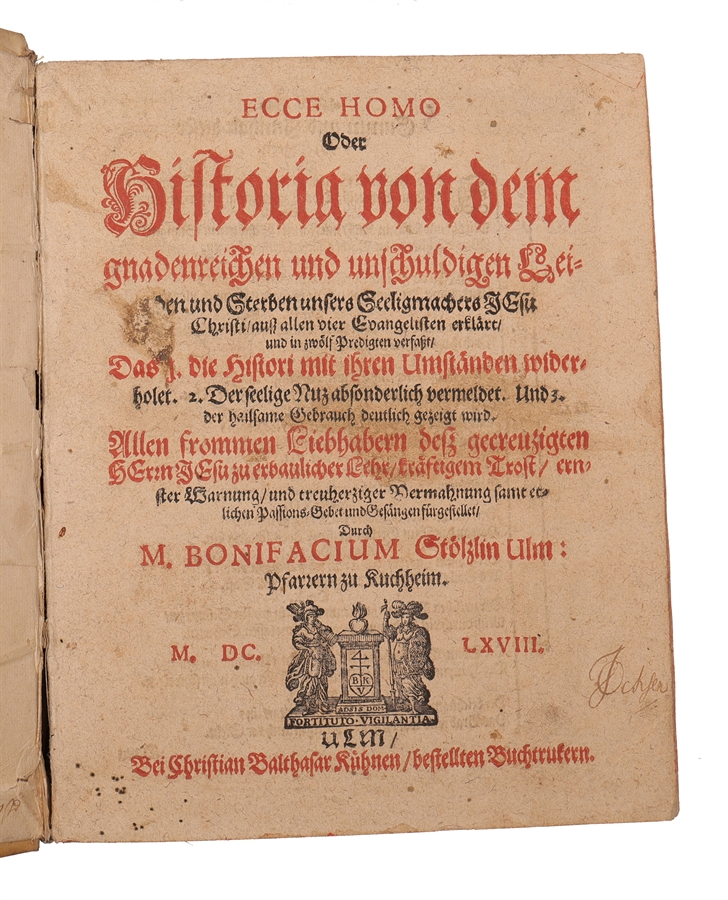 ECCE HOMO
Oder
Historia von dem
gnadenreichen und unschuldigen Lei-
den und Sterben unsers Seeligmachers JEsu
Christi/ auß allen vier Evangelisten erklärt/
und in zwölf Predigten verfaßt/
Das 1. die Histori mit ihren Umständen wider-
holet. 2. Der seelige Nuz absonderlich vermeldet. Und 3.
der heilsame Gebrauch deutlich gezeigt wird.
Allen frommen Liebhabern deß gecreuzigten
HErrn JEsu zu erbaulicher Lehr/ kräftigem Trost/ ern-
ster Warnung/ und treuherziger Vermahnung samt et-
lichen Passions-Gebet und Gesängen fürgestellet/
Durch
M. BONIFACIUM Stölzlin Ulm:
Pfarrern zu Kuchheim.
M. DC. LXVIII.
B K
V
ADSIS DOM.
FORTITUTO · VIGILANTIA.
ULM/
Bei Christian Balthasar Kühnen/ bestellten Buchtrukern.